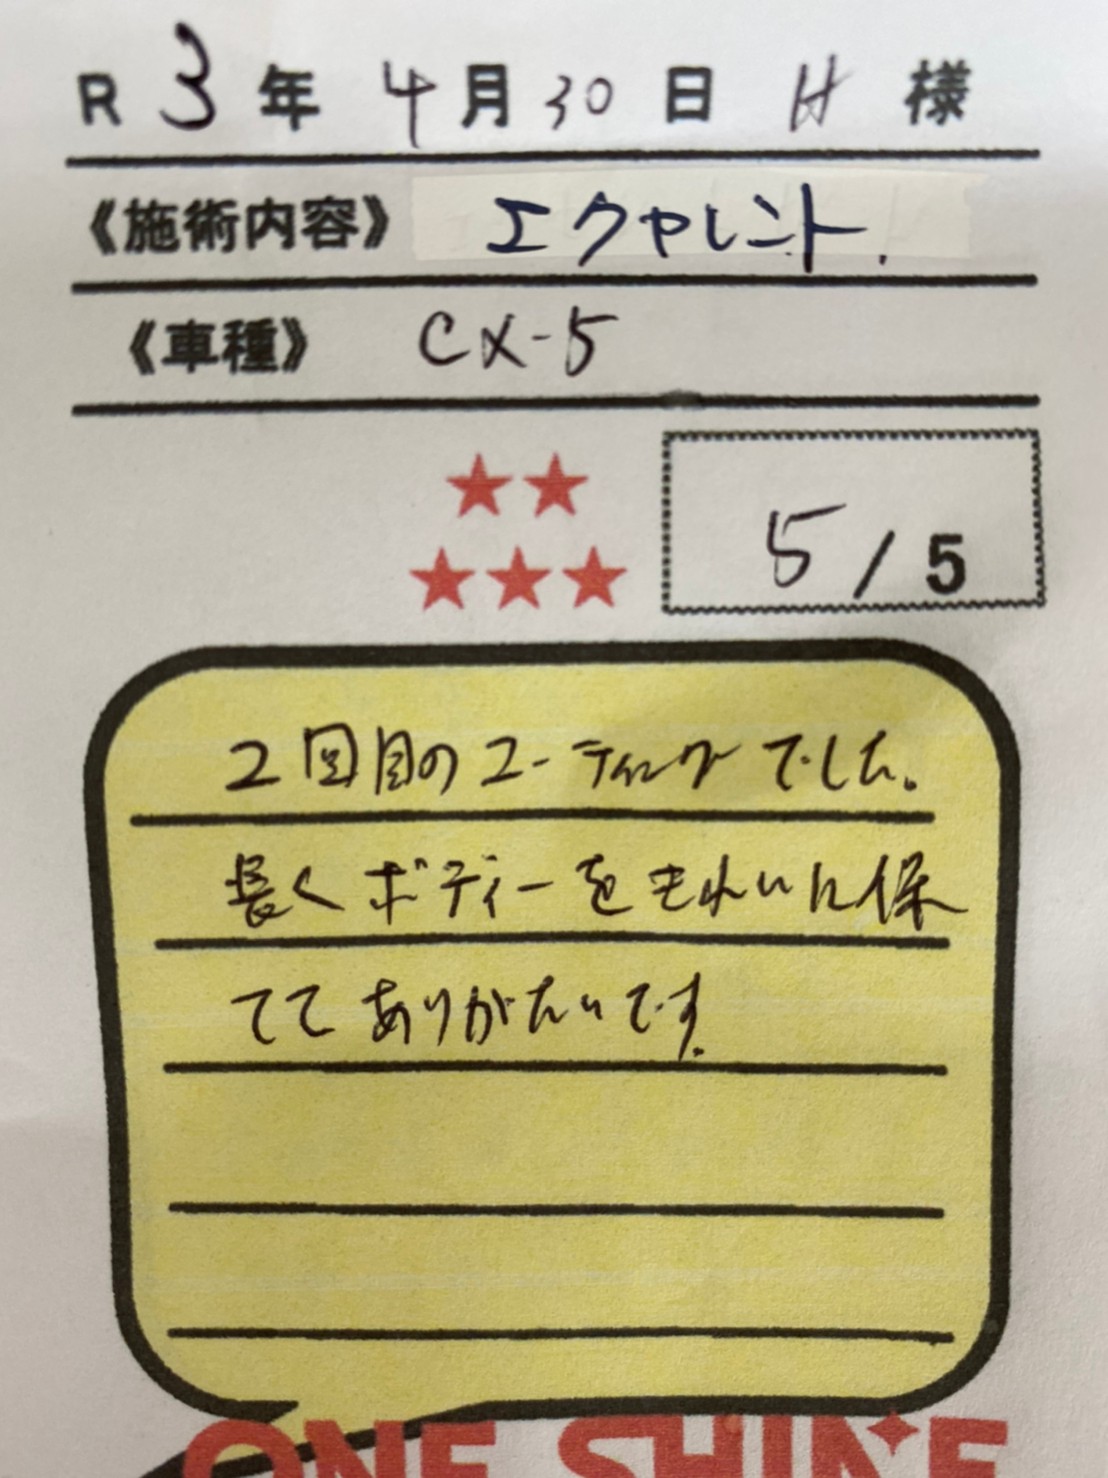 R 3 年 4 月 30 日 H 様
《施術内容》 エクャレント.
《車種》 CX-5
5 / 5
2回目のコーティングでした。
長くボディーをきれいに保
ててありがたいです.
ONE SHINE